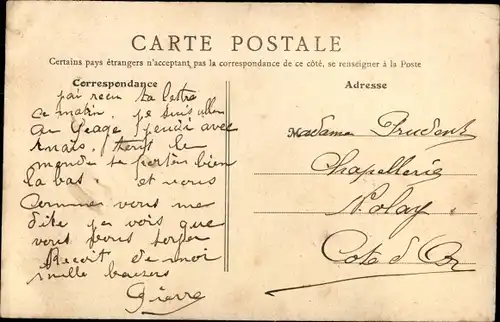 CARTE POSTALE
Certains pays étrangers n'acceptant pas la correspondance de ce côté, se renseigner à la Poste
Correspondance
Adresse
j'ai reçu ta lettre
ce matin. je suis allen
au Geage jeudi avec
Anaïs. tout le
monde se porten bien
la bas. et vous
Comme vous me
dite je vois que
vous vous
Reçoit de moi
mille baisers
Pierre
Madame Prudent
Chapellerie
Nolay
Cote d'Or